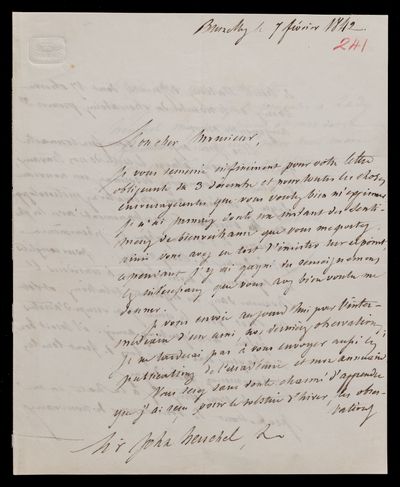 Bruxelles le 7 février 1842.
241
Mon cher Monsieur,
Je vous remercie infiniment pour votre lettre
obligeante du 3 décembre et pour toutes les choses
encourageantes que vous voulez bien m'exprimer
Je n'ai jamais douté un instant des senti-
mens de bienveillance que vous me portez
ainsi vous avez eu tort d'insister sur ce point
cependant j'y ai gagné les renseignemens
intéressans que vous avez bien voulu me
donner.
Je vous envoie aujourd'hui par l'inter-
médiaire d'un ami mes dernières observations,
Je ne tarderai pas à vous envoyer aussi les
publications de l'académie et mon annuaire
Vous serez sans doute charmé d'apprendre
que j'ai reçu pour le solstice d'hiver, les obser-
vations
Sir John Herschel,